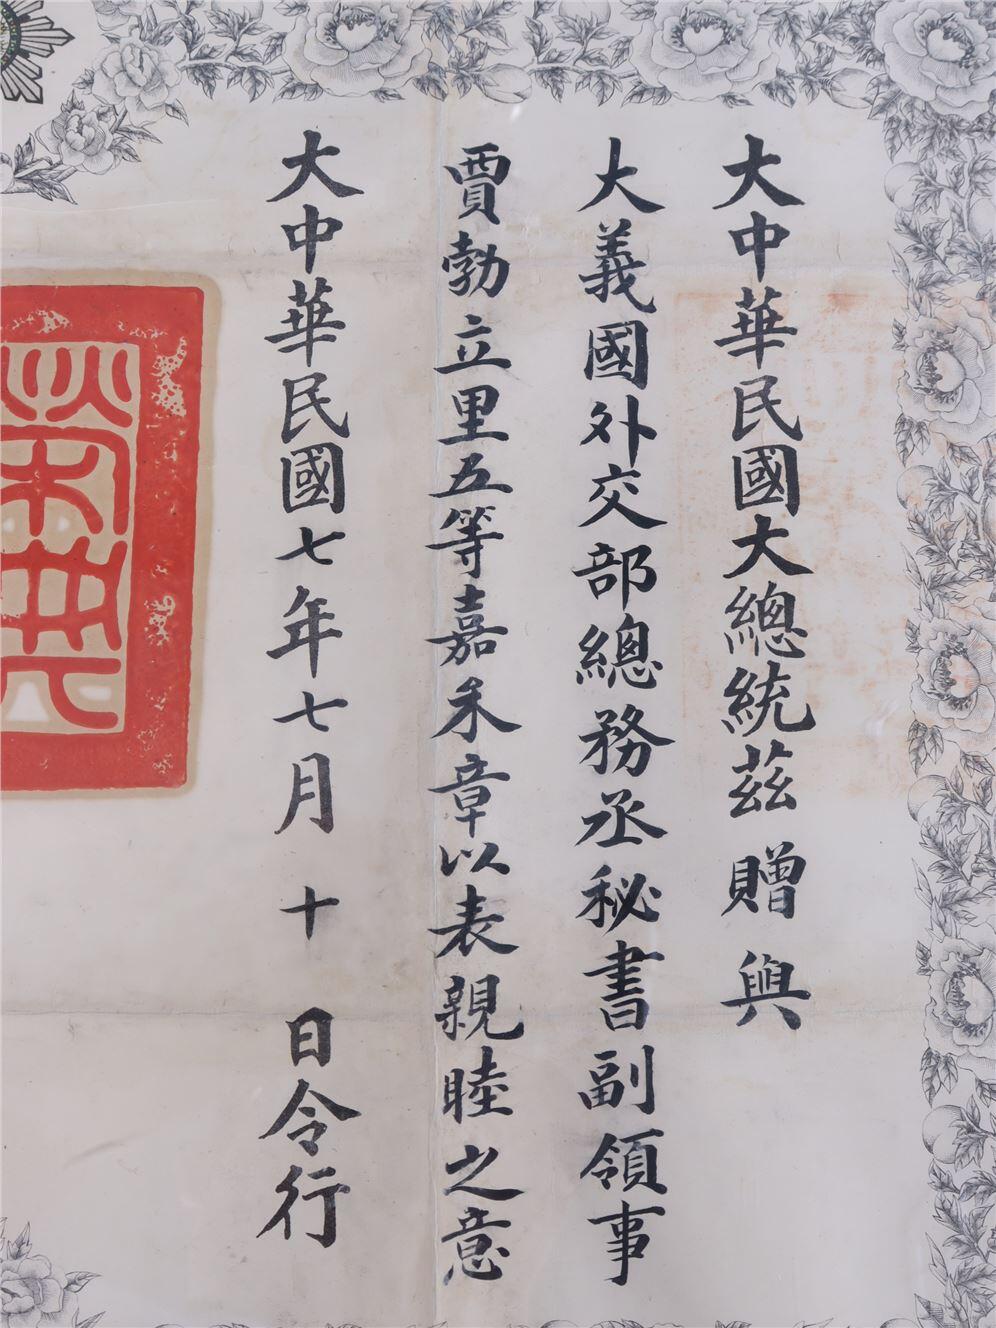 大中華民國大總統茲贈與
大義國外交部總務丞秘書副領事
賈勃立里五等嘉禾章以表親睦之意
大中華民國七年七月十日令行
榮典